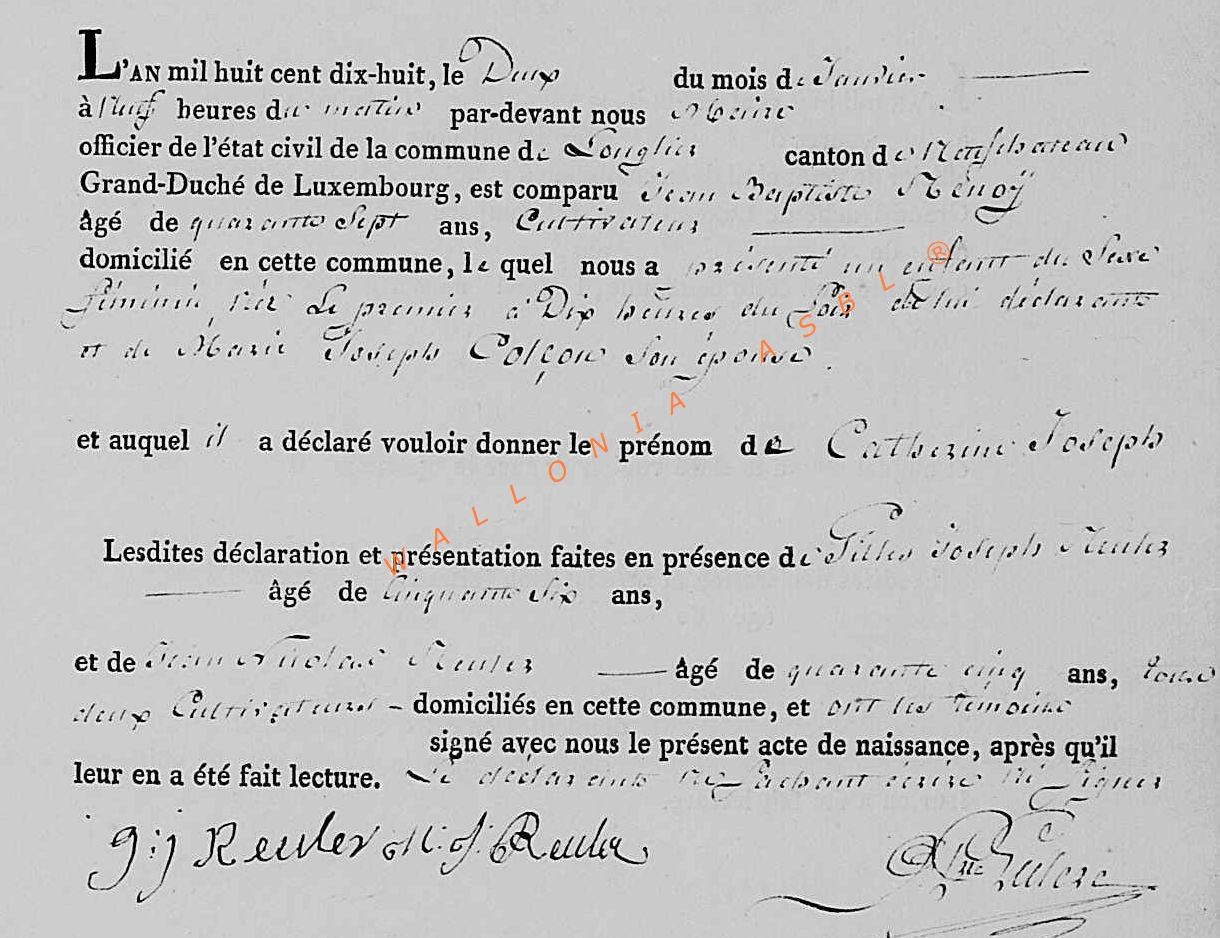 L'AN mil huit cent dix-huit, le Deux du mois de Janvier
à Neuf heures du matin par-devant nous Maire
officier de l'état civil de la commune de Longlier canton de Neufchateau
Grand-Duché de Luxembourg, est comparu Jean Baptiste Nenoÿ
âgé de quarante Sept ans, Cultivateur
domicilié en cette commune, le quel nous a présenté un enfant du Sexe
féminin, née Le premier à Dix heures du Soir de lui déclarant
et de Marie Joseph Colçon Son épouse.
et auquel il a déclaré vouloir donner le prénom de Catherine Joseph
Lesdites déclaration et présentation faites en présence de Gilles Joseph Reuler
âgé de Cinquante Six ans,
et de Jean Nicolas Reuler âgé de quarante cinq ans, tous
deux Cultivateurs - domiciliés en cette commune, et ont les témoins
signé avec nous le présent acte de naissance, après qu'il
leur en a été fait lecture. Le déclarant ne Sachant écrire ni Signer
g:j Reuler N. j. Reuler
WALLONIA ASBL ®